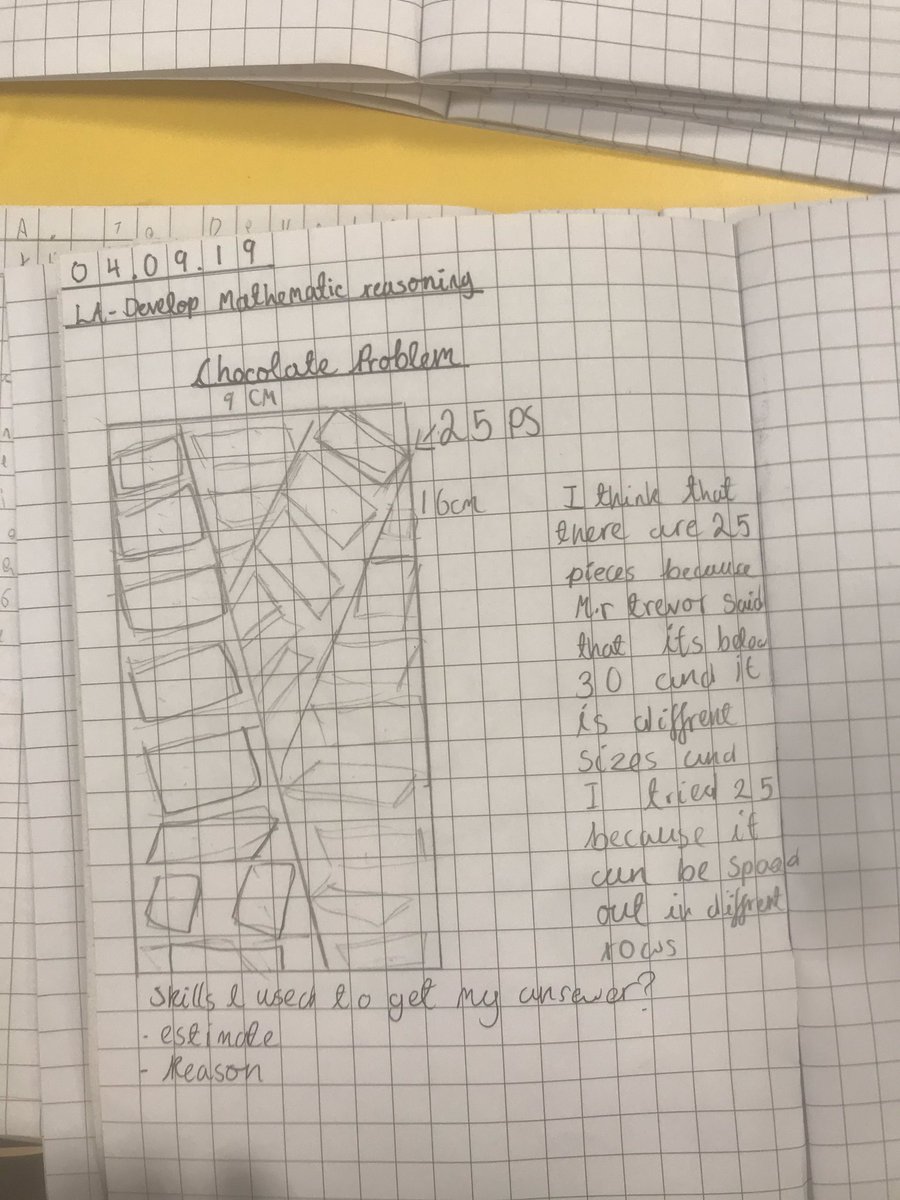 04.09.19
LA - Develop Mathematic reasoning
Chocolate Problem
9 CM
25 PS
16cm
I think that
there are 25
pieces because
M.r trevor said
that its below
30 and it
is diffrent
sizes and
I tried 25
because it
can be
out in diffrent
rows
Skills I used to get my answer?
- estimate
- Reason